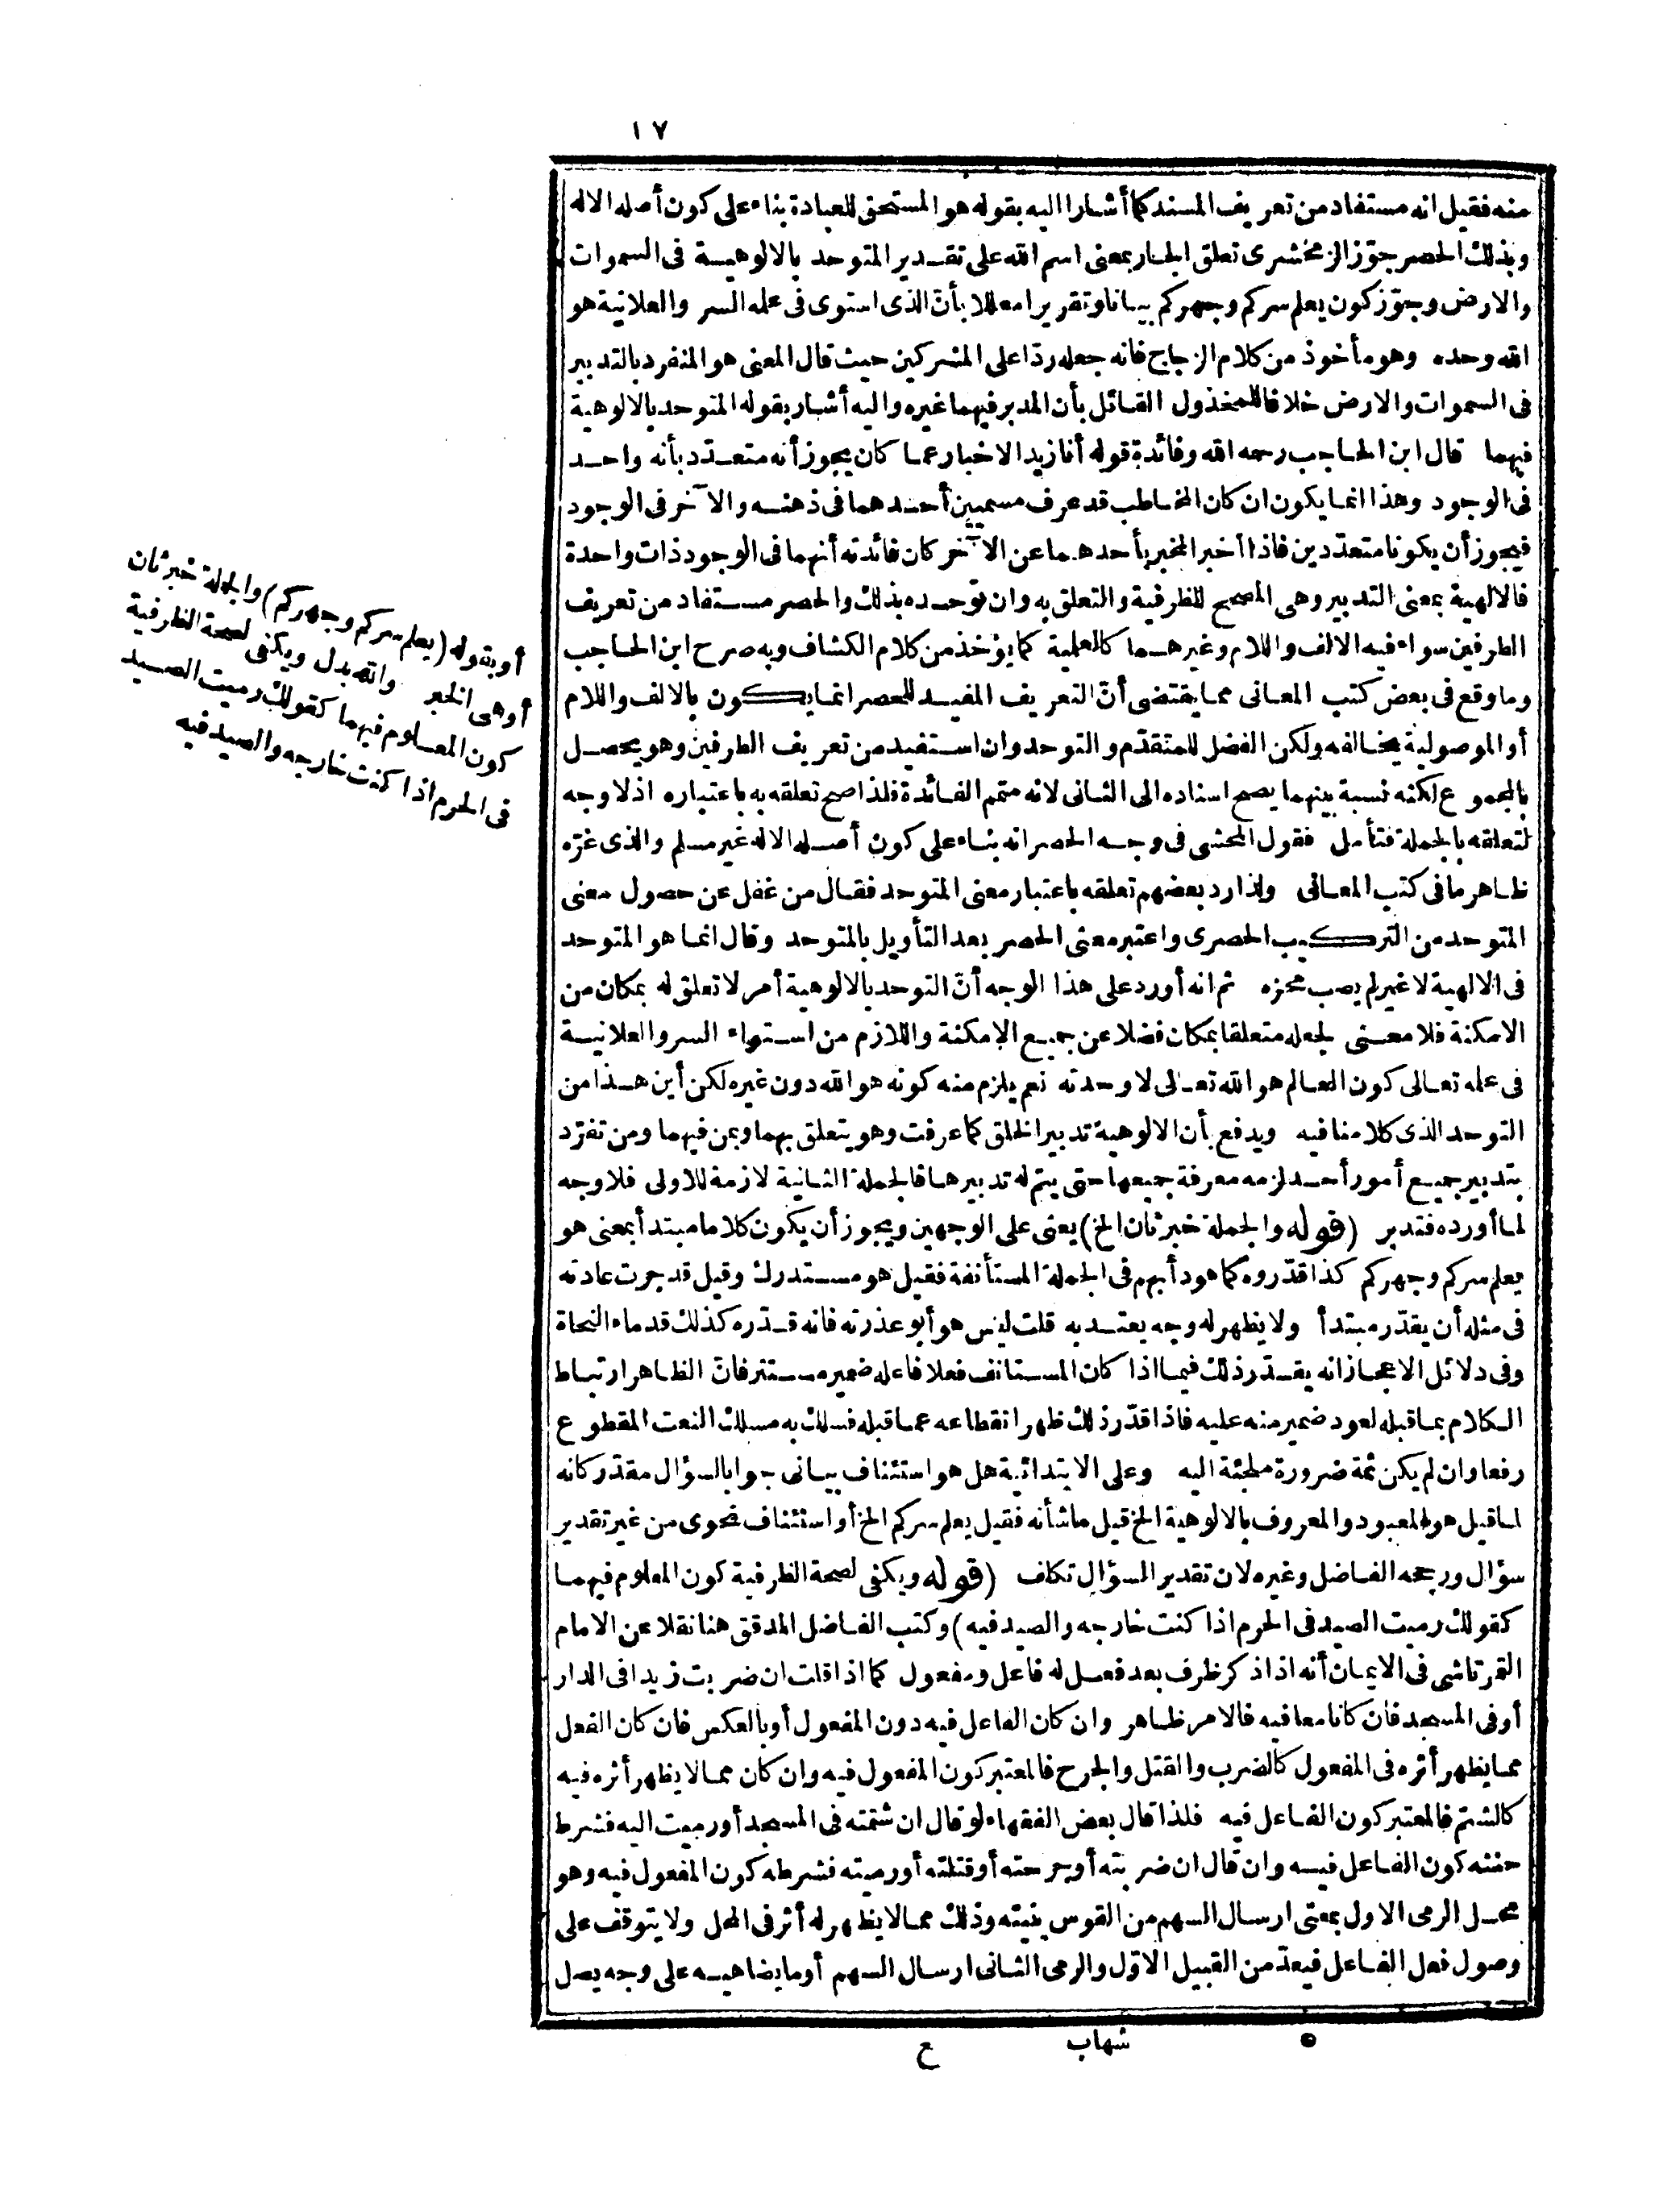 ١٧
منه فقيل انه مستفاد من تعريف المسند كما أشار اليه بقوله هو المستحق للعبادة بناء على كون أصله الاله
وبذلك الحصر جوّز الزمخشرى تعلق الجار بمعنى اسم الله على تقدير المتوحد بالالوهية فى السموات
والارض وجوّز كون يعلم سركم وجهركم بيانا وتقريرا معللا بأنّ الذى استوى فى علمه السر والعلانية هو
الله وحده وهو مأخوذ من كلام الزجاج فانه جعله ردّا على المشركين حيث قال المعنى هو المنفرد بالتدبير
فى السموات والارض خلافا للمخذول القائل بأن المدبر فيهما غيره واليه أشار بقوله المتوحد بالالوهية
فيهما قال ابن الحاجب رحمه الله وفائدة قوله أنا زيد الاخبار عما كان يجوز أنه متعدّد بأنه واحد
فى الوجود وهذا انما يكون ان كان المخاطب قد عرف مسميين أحدهما فى ذهنه والآخر فى الوجود
فيجوز أن يكونا متعدّدين فاذا أخبر المخبر بأحدهما عن الآخر كان فائدته أنهما فى الوجود ذات واحدة
فالالهية بمعنى التدبير وهى المصحح للظرفية والتعلق به وان توحده بذلك والحصر مستفاد من تعريف
الطرفين سواء فيه الالف واللام وغيرهما كالعلمية كما يؤخذ من كلام الكشاف وبه صرح ابن الحاجب
وما وقع فى بعض كتب المعانى مما يقتضى أنّ التعريف المفيد للحصر انما يكون بالالف واللام
أو الموصولية يخالفه ولكن الفضل للمتقدّم والتوحد وان استفيد من تعريف الطرفين وهو يحصل
بالمجموع لكنه نسبة بينهما يصح اسناده الى الثانى لانه متمم الفائدة فلذا صح تعلقه به باعتباره اذ لا وجه
لتعلقه بالجملة فتأمل فقول المحشى فى وجه الحصر انه بناء على كون أصله الاله غير مسلم والذى غرّه
ظاهر ما فى كتب المعانى ولذا رد بعضهم تعلقه باعتبار معنى المتوحد فقال من غفل عن حصول معنى
المتوحد من التركيب الحصرى واعتبر معنى الحصر بعد التأويل بالمتوحد وقال انما هو المتوحد
فى الالهية لا غير لم يصب محزه ثم انه أورد على هذا الوجه أنّ التوحد بالالوهية أمر لا تعلق له بمكان من
الامكنة فلا معنى لجعله متعلقا بمكان فضلا عن جميع الامكنة واللازم من استواء السر والعلانية
فى علمه تعالى كون العالم هو الله تعالى لا وحدته نعم يلزم منه كونه هو الله دون غيره لكن أين هذا من
التوحد الذى كلامنا فيه ويدفع بأن الالوهية تدبير الخلق كما عرفت وهو يتعلق بهما وبمن فيهما ومن تفرّد
بتدبير جميع أمور أحد لزمه معرفة جميعها حتى يتم له تدبيرها فالجملة الثانية لازمة للاولى فلا وجه
لما أورده فتدبر (قوله والجملة خبر ثان الخ) يعنى على الوجهين ويجوز أن يكون كلاما مبتدأ بمعنى هو
يعلم سركم وجهركم كذا قدّروه كما هو دأبهم فى الجملة المستأنفة فقيل هو مستدرك وقيل قد جرت عادته
فى مثله أن يقدّر مبتدأ ولا يظهر له وجه يعتد به قلت ليس هو أبو عذرته فانه قدّره كذلك قدماء النحاة
وفى دلائل الاعجاز انه يقدّر ذلك فيما اذا كان المستانف فعلا فاعله ضمير مستتر فانّ الظاهر ارتباط
الكلام بما قبله لعود ضمير منه عليه فاذا قدّر ذلك ظهر انقطاعه عما قبله فسلك به مسلك النعت المقطوع
رفعا وان لم يكن ثمة ضرورة ملجئة اليه وعلى الابتدائية هل هو استئناف بيانى جوابا لسؤال مقدّر كانه
لما قيل هو المعبود والمعروف بالالوهية الخ قيل ما شأنه فقيل يعلم سركم الخ أو استئناف نحوى من غير تقدير
سؤال ورجحه الفاضل وغيره لان تقدير السؤال تكلف (قوله ويكفى لصحة الظرفية كون المعلوم فيهما
كقولك رميت الصيد فى الحرم اذا كنت خارجه والصيد فيه) وكتب الفاضل المدقق هنا نقلا عن الامام
التمرتاشى فى الايمان أنه اذا ذكر ظرف بعد فعل له فاعل ومفعول كما اذا قلت ان ضربت زيدا فى الدار
أو فى المسجد فان كانا معا فيه فالامر ظاهر وان كان الفاعل فيه دون المفعول أو بالعكس فان كان الفعل
مما يظهر أثره فى المفعول كالضرب والقتل والجرح فالمعتبر كون المفعول فيه وان كان مما لا يظهر أثره فيه
كالشتم فالمعتبر كون الفاعل فيه فلذا قال بعض الفقهاء لو قال ان شتمته فى المسجد أو رميت اليه فشرط
حنثه كون الفاعل فيه وان قال ان ضربته أو جرحته أو قتلته أو رميته فشرطه كون المفعول فيه وهو
محمل الرمى الاول بمعنى ارسال السهم من القوس بنيته وذلك مما لا يظهر له أثر فى المحل ولا يتوقف على
وصول فعل الفاعل فيعدّ من القبيل الاوّل والرمى الثانى ارسال السهم أو ما يضاهيه على وجه يصل
أو بقوله (يعلم سركم وجهركم) والجملة خبر ثان
أو هى الخبر والله بدل ويكفى لصحة الظرفية
كون المعلوم فيهما كقولك رميت الصيد
فى الحرم اذا كنت خارجه والصيد فيه
٥ شهاب ع